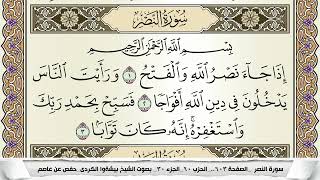 سُورَةُ النَّصْرِ
بِسْمِ اللَّهِ الرَّحْمَٰنِ الرَّحِيمِ
إِذَا جَآءَ نَصْرُ ٱللَّهِ وَٱلْفَتْحُ ١ وَرَأَيْتَ ٱلنَّاسَ
يَدْخُلُونَ فِى دِينِ ٱللَّهِ أَفْوَاجًا ٢ فَسَبِّحْ بِحَمْدِ رَبِّكَ
وَٱسْتَغْفِرْهُ ۚ إِنَّهُۥ كَانَ تَوَّابًۢا ٣
سورة النصر .. الصفحة ٦٠٣ .. الحزب ٦٠ .. الجزء ٣٠ .. بصوت الشيخ بيشةوا الكردي .. حفص عن عاصم